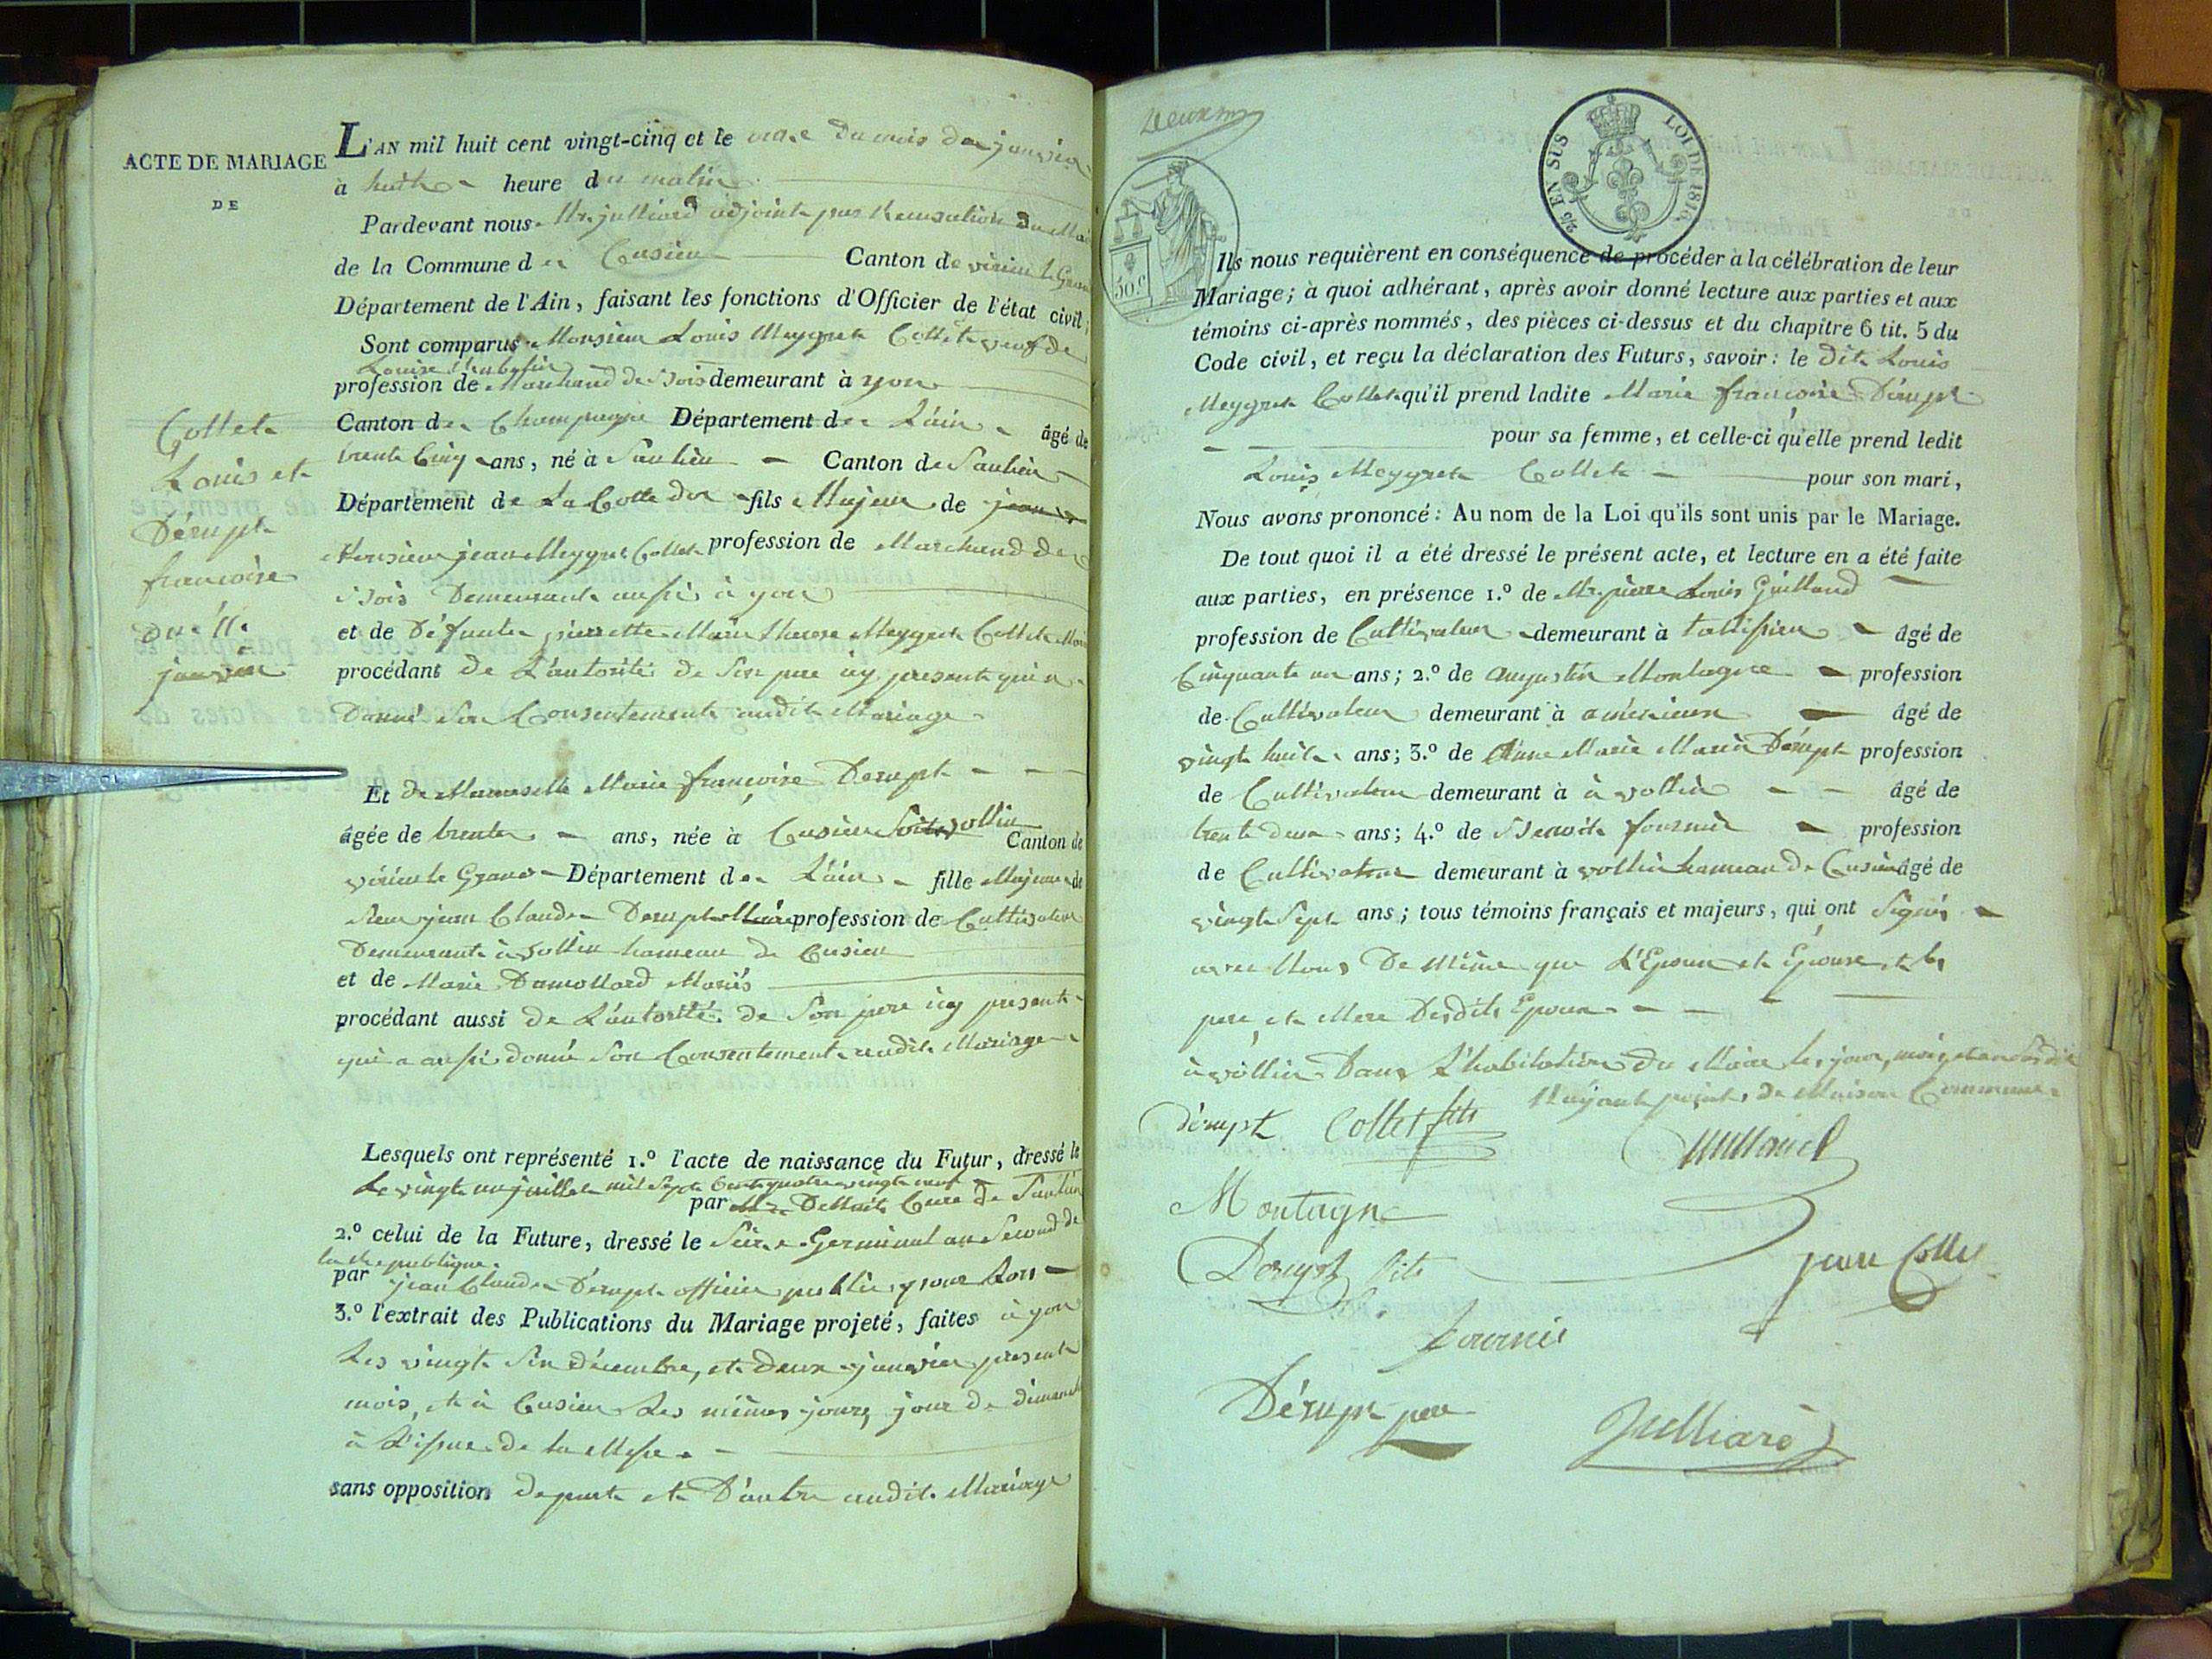 ACTE DE MARIAGE
DE
Collet
Louis et
Dérupt
francoise
du 11
janvier
L'AN mil huit cent vingt-cinq et le onze du mois de janvier
à huit heure du matin
Pardevant nous Mr. julliard adjoint par du Maire
de la Commune de Cusieu Canton de virieu le Grand
Département de l'Ain, faisant les fonctions d'Officier de l'état civil;
Sont comparus Monsieur Louis Meygret Collet veuf de
Louise
profession de Marchand de Bois demeurant à yon
Canton de Champagne Département de L'ain âgé de
trente Cinq ans, né à Saulieu Canton de Saulieu
Département de La Cotte dor fils Majeur de
Monsieur jean Meygret Collet profession de Marchand de
Bois Demeurant aussi à yon
et de Défunte pierrette Marie therese Meygret Collet
procédant de L'autorité de Son pere icy present qui a
Donné Son Consentement audit Mariage
Et de Mameselle Marie françoise Derupt
âgée de trente ans, née à Cusieu vollien Canton de
virieu le Grand Département de L'ain fille Majeure de
Sieur jean Claude Derupt profession de Cultivateur
Demeurant à vollien hameau de Cusieu
et de Marie Dumollard Mariés
procédant aussi de L'autorité de Son pere icy present
qui a aussi donné Son Consentement audit Mariage
Lesquels ont représenté 1.º l'acte de naissance du Futur, dressé le
Le vingt un juillet mil Sept Cent quatre vingt neuf
par Mr. Curé de Saulieu
2.º celui de la Future, dressé le Seize Germinal an Second de
la république
par jean Claude Dérupt officier public pour Lors
3.º l'extrait des Publications du Mariage projeté, faites à yon
Les vingt Six décembre, et deux janvier present
mois, et à Cusieu Les mêmes jours jour de dimanche
à L'issue de la Messe
sans opposition de part et D'autre audit Mariage
Deux
2/5 EN SUS LOI DE 1816
50.c
Ils nous requièrent en conséquence de procéder à la célébration de leur
Mariage; à quoi adhérant, après avoir donné lecture aux parties et aux
témoins ci-après nommés, des pièces ci-dessus et du chapitre 6 tit. 5 du
Code civil, et reçu la déclaration des Futurs, savoir: le dit Louis
Meygret Collet qu'il prend ladite Marie francoise Dérupt
pour sa femme, et celle-ci qu'elle prend ledit
Louis Meygret Collet pour son mari,
Nous avons prononcé: Au nom de la Loi qu'ils sont unis par le Mariage.
De tout quoi il a été dressé le présent acte, et lecture en a été faite
aux parties, en présence 1.º de Mr. pierre Louis Guilland
profession de Cultivateur demeurant à tallissieu âgé de
Cinquante un ans; 2.º de augustin Montagne profession
de Cultivateur demeurant à ameisieux âgé de
vingt huit ans; 3.º de Anne Marie Marin Dérupt profession
de Cultivateur demeurant à à vollien âgé de
trente deux ans; 4.º de Benoit fournier profession
de Cultivateur demeurant à vollien hameau de Cusieu âgé de
vingt Sept ans; tous témoins français et majeurs, qui ont Signés
avec Nous De Même que L'Epoux et Epouse, et les
pere et Mere Desdits Epoux
à vollien Dans L'habitation du Maire les jour, mois et an Susdit
N'ayant point de Maison Commune
dérupt Collet fils
Montagne
Derupt fils
jean Collet
fournier
Dérupt pere
Julliard